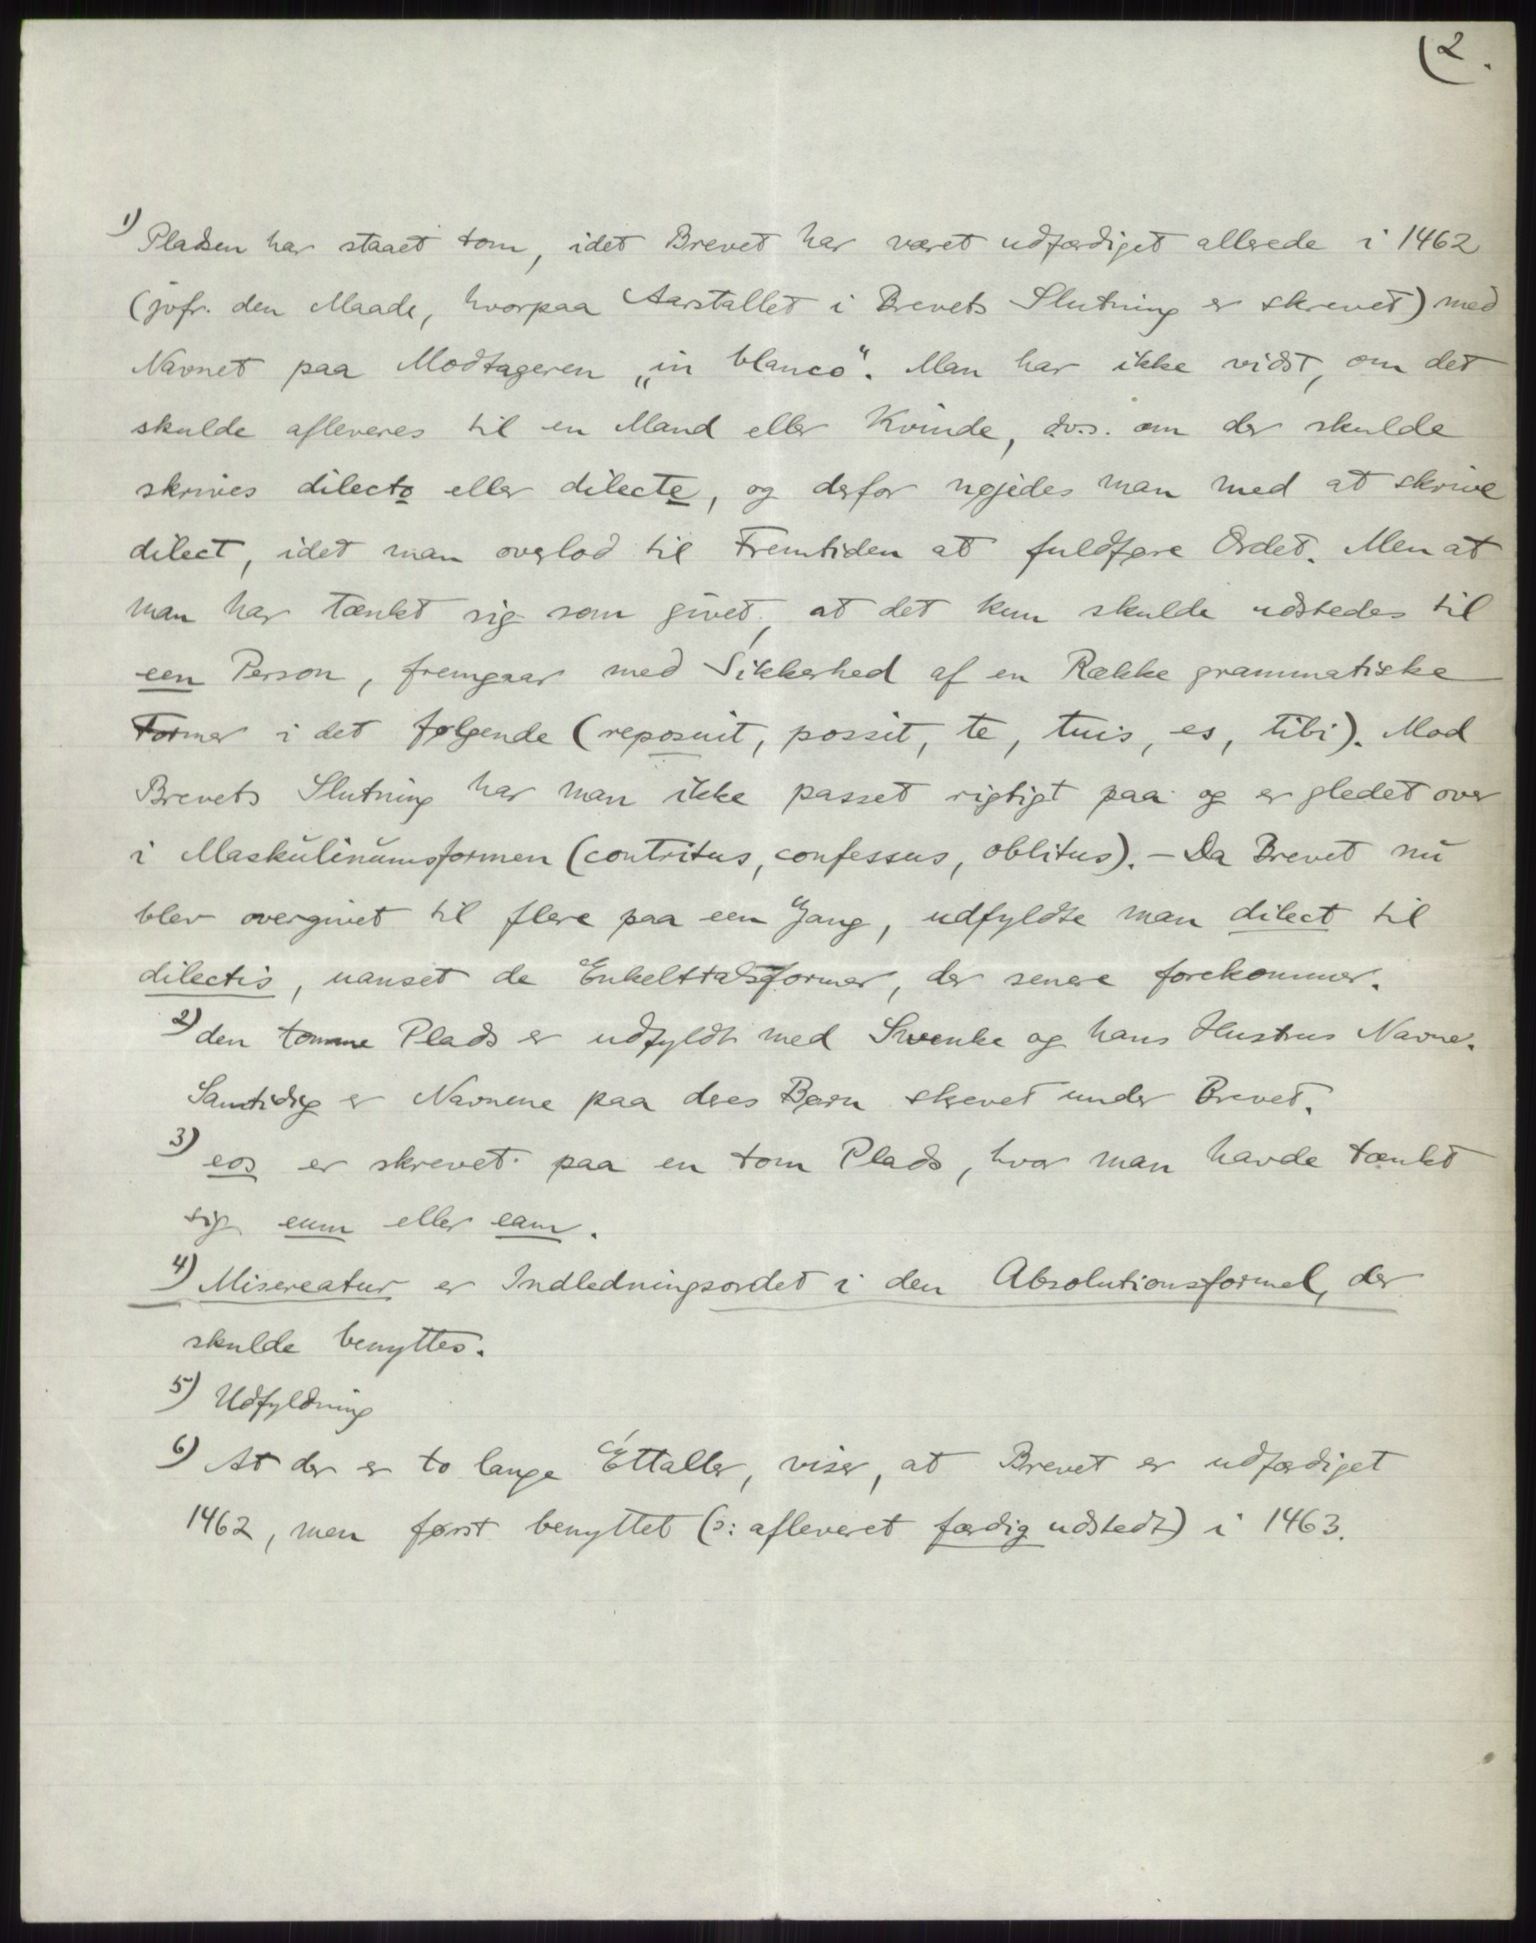 (2.
1) Pladsen har staaet tom, idet Brevet har været udfærdiget allerede i 1462
(jvfr. den Maade, hvorpaa Aarstallet i Brevets Slutning er skrevet) med
Navnet paa Modtageren „in blanco“. Man har ikke vidst, om det
skulde afleveres til en Mand eller Kvinde, d.v.s. om der skulde
skrives dilecto eller dilecte, og derfor nøjedes man med at skrive
dilect, idet man overlod til Fremtiden at fuldføre Ordet. Men at
man har tænkt sig som givet, at det kun skulde udstedes til
een Person, fremgaar med Sikkerhed af en Række grammatiske
Former i det følgende (reposuit, possit, te, tuis, es, tibi). Mod
Brevets Slutning har man ikke passet rigtigt paa og er gledet over
i Maskulinumsformen (contritus, confessus, oblitus). - Da Brevet nu
blev overgivet til flere paa een Gang, udfyldte man dilect til
dilectis, uanset de Enkelttalsformer, der senere forekommer.
2) den tomme Plads er udfyldt med Swenke og hans Hustrus Navne.
Samtidig er Navnene paa deres Børn skrevet under Brevet.
3) eos er skrevet paa en tom Plads, hvor man havde tænkt
sig eum eller eam.
4) Misereatur er Indledningsordet i den Absolutionsformel, der
skulde benyttes.
5) Udfyldning
6) At der er to lange Éttaller, viser, at Brevet er udfærdiget
1462, men først benyttet (ɔ: afleveret færdig udstedt) i 1463.